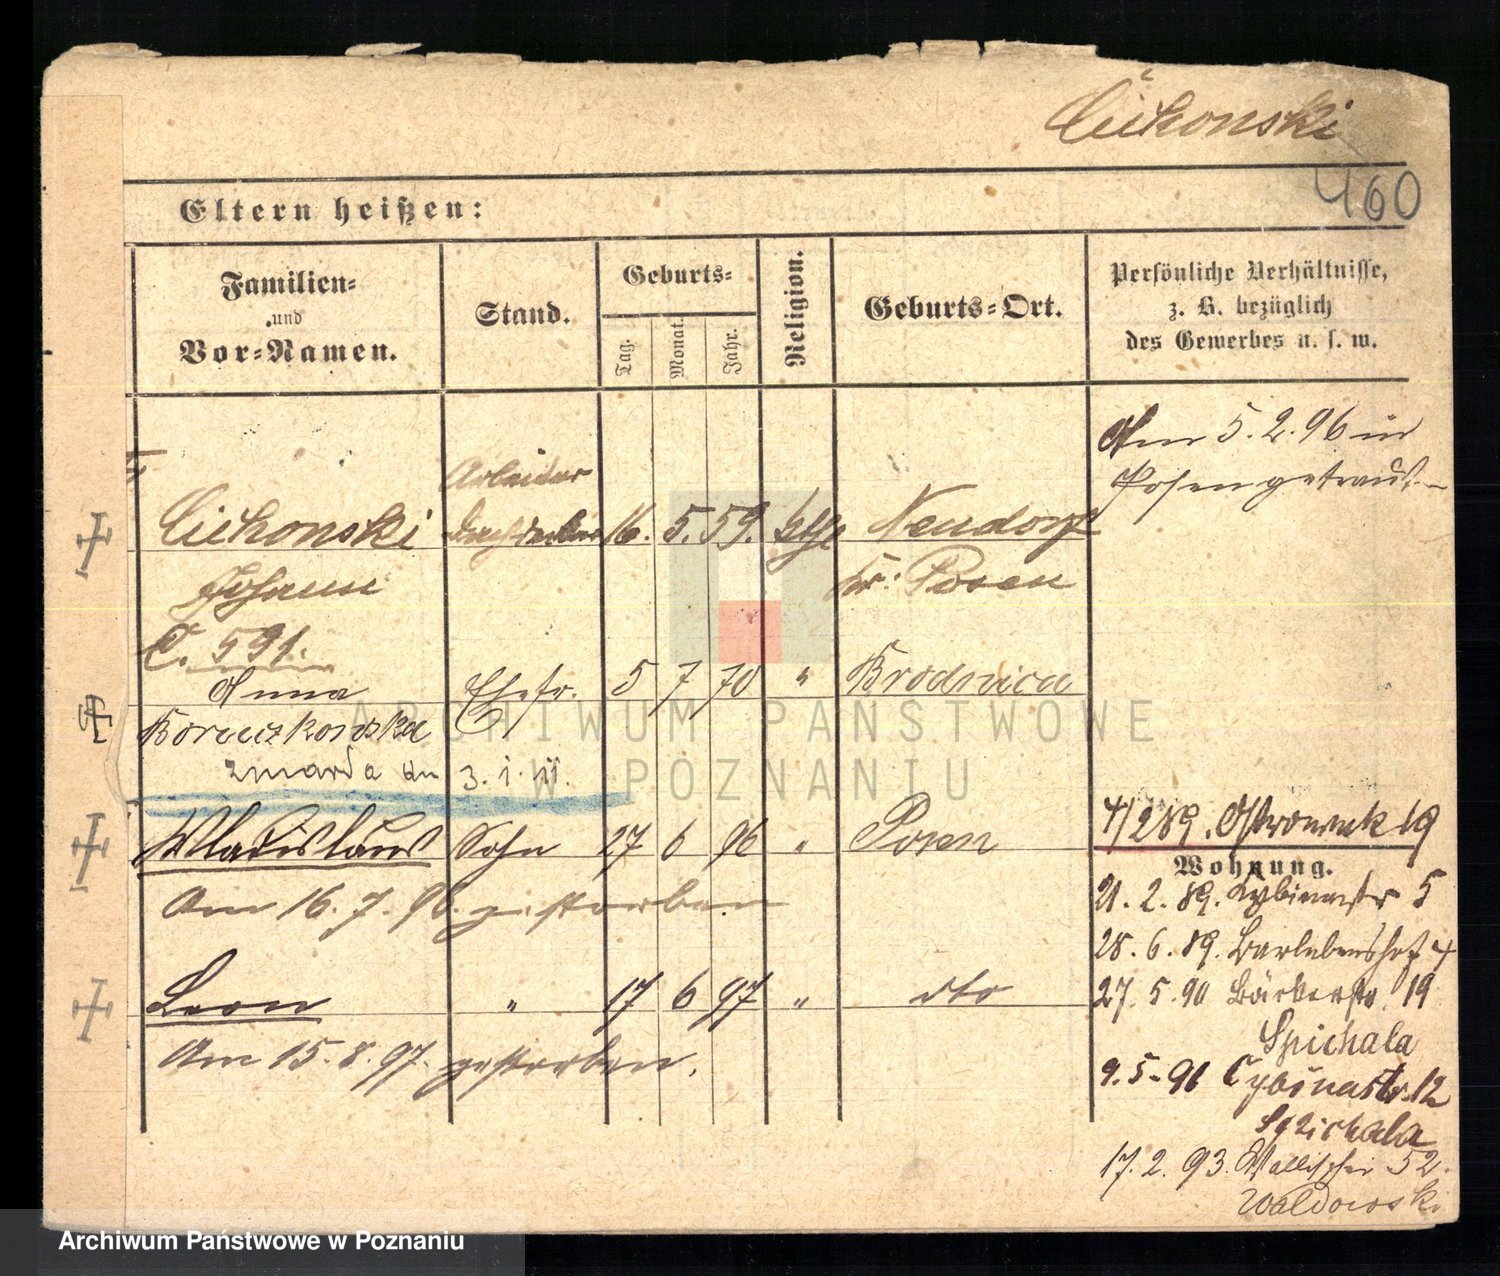 Cichonski
460
Eltern heißen:
Familien- und Vor-Namen.
Stand.
Geburts-
Tag.
Monat.
Jahr.
Religion.
Geburts-Ort.
Persönliche Verhältnisse,
z. B. bezüglich
des Gewerbes u. s. w.
Am 5.2.96 in
Posen getraut
Arbeiter
Cichonski 16. 5. 59. kth Neudorf
Johann Kr. Posen
C. 591.
Anna Ehefr. 5 7 70 " Brodnica
Boraczkowska
zmarła dn 3. 1. 11.
Wladislaus Sohn 27 6 96 " Posen
Am 16.7.96. gestorben
Leon " 17 6 97 " dto
Am 15.8.97. gestorben.
4/2 89. Ostrowek 19
Wohnung.
21.2.89. Cybinastr 5
28.6.89. 4
27.5.90 Bäckerstr. 19
Spichala
9.5.91 Cybinastr. 12
Spichala
17.2.93. Wallischei 52.
Waldowski
ARCHIWUM PAŃSTWOWE
W POZNANIU
Archiwum Państwowe w Poznaniu